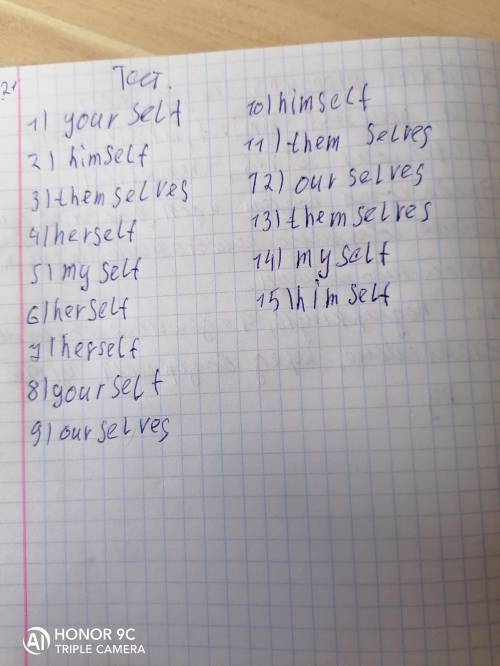 21
Тест.
1) your self
2) himself
3) them selves
4) herself
5) my self
6) herself
7) herself
8) your self
9) our selves
10) himself
11) them selves
12) our selves
13) them selves
14) my self
15) him self
AI HONOR 9C
TRIPLE CAMERA